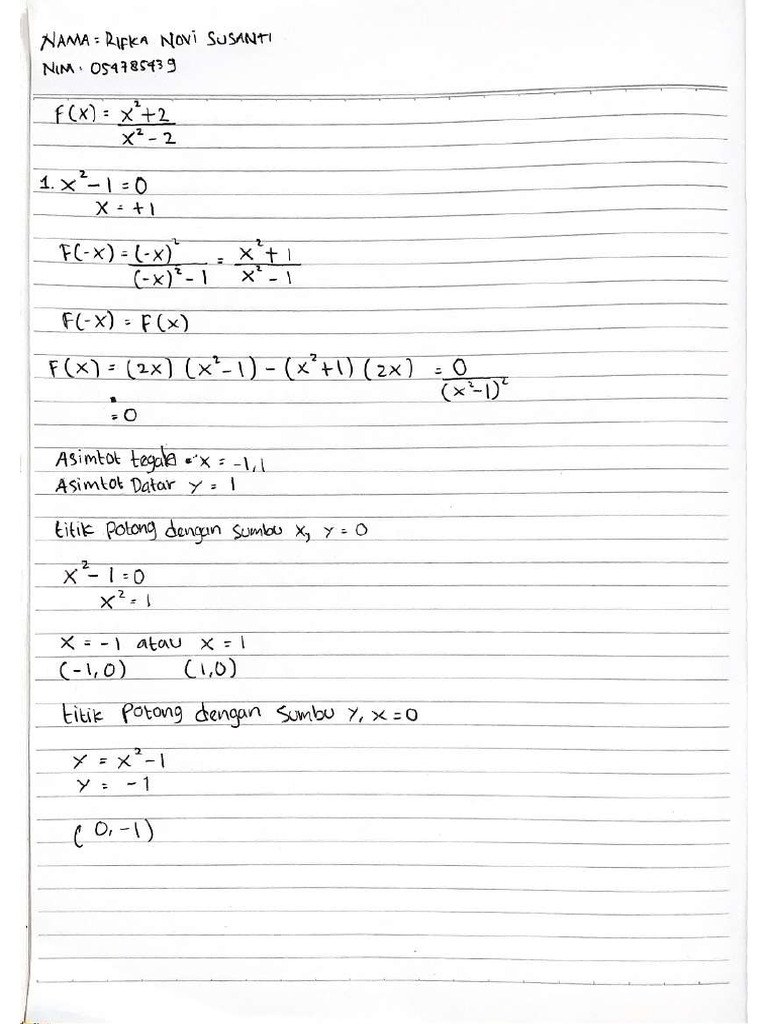 NAMA = RIFKA NOVI SUSANTI
NIM. 054785439
F(x) = x²+2
x² - 2
1. x² - 1 = 0
x = +1
F(-x) = (-x)² / (-x)² - 1 = x² + 1 / x² - 1
F(-x) = F(x)
F(x) = (2x) (x² - 1) - (x² + 1) (2x) = 0 / (x² - 1)²
= 0
Asimtot tegak x = -1, 1
Asimtot Datar y = 1
titik Potong dengan sumbu x, y = 0
x² - 1 = 0
x² = 1
x = -1 atau x = 1
(-1,0) (1,0)
titik Potong dengan sumbu y, x = 0
y = x² - 1
y = -1
(0, -1)